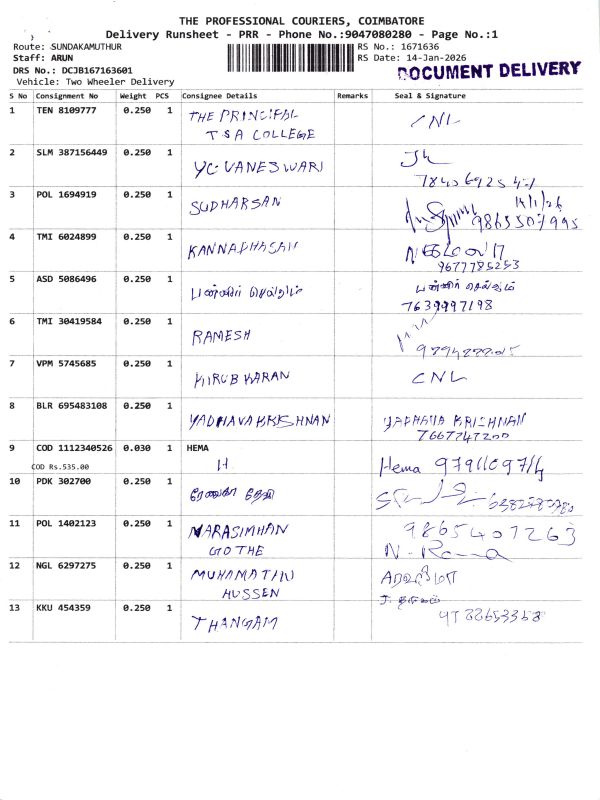 THE PROFESSIONAL COURIERS, COIMBATORE
Delivery Runsheet - PRR - Phone No.:9047080280 - Page No.:1
Route: SUNDAKAMUTHUR RS No.: 1671636
Staff: ARUN RS Date: 14-Jan-2026
DRS No.: DCJB167163601 DOCUMENT DELIVERY
Vehicle: Two Wheeler Delivery
S No Consignment No Weight PCS Consignee Details Remarks Seal & Signature
1 TEN 8109777 0.250 1 THE PRINCIPAL CNL
TSA COLLEGE
2 SLM 387156449 0.250 1 YC VANESWARI
3 POL 1694919 0.250 1 SUDHARSAN 14/1/26
4 TMI 6024899 0.250 1 KANNADHASAN
9677785253
5 ASD 5086496 0.250 1 பன்னீர் செல்வம் பன்னீர் செல்வம்
7639997198
6 TMI 30419584 0.250 1 RAMESH
7 VPM 5745685 0.250 1 KIRUBKARAN CNL
8 BLR 695483108 0.250 1 YADHAVAKRISHNAN YADHAVA KRISHNAN
7667747200
9 COD 1112340526 0.030 1 HEMA Hema
COD Rs.535.00 H
10 PDK 302700 0.250 1 ரேணுகா தேவி
11 POL 1402123 0.250 1 NARASIMHAN 9865407263
GOTHE N-Rama
12 NGL 6297275 0.250 1 MUHAMATHU
HUSSEN
13 KKU 454359 0.250 1 THANGAM